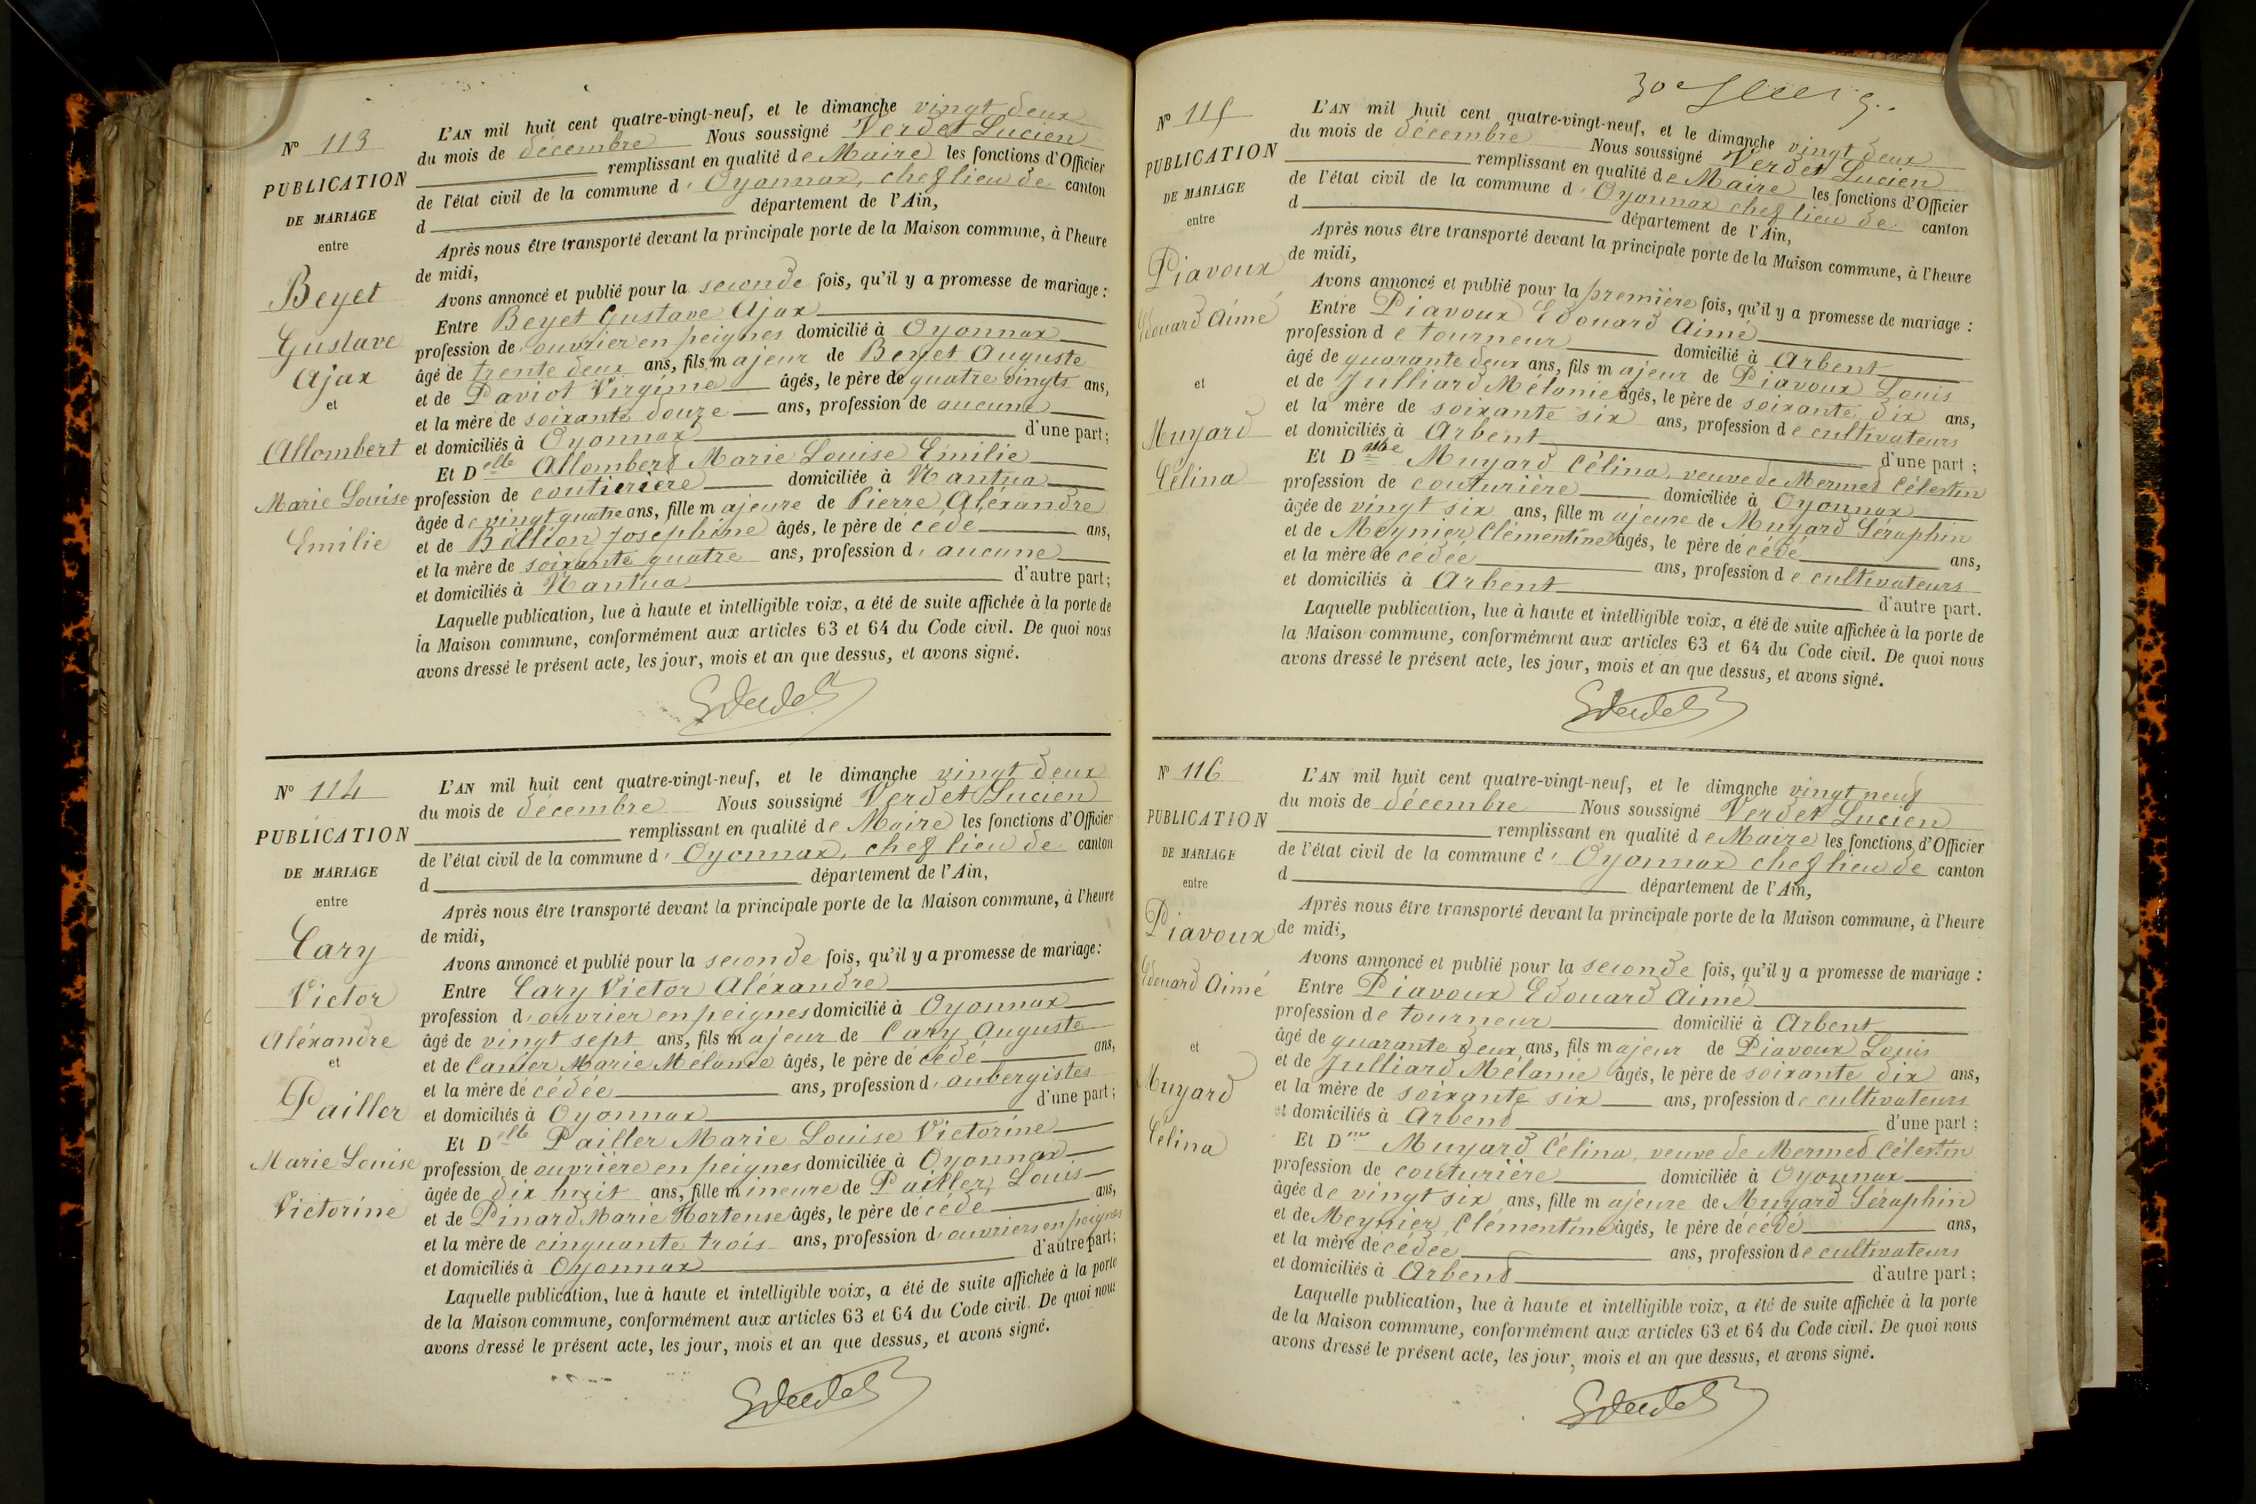 N° 113
PUBLICATION
DE MARIAGE
entre
Beyet
Gustave
Ajax
et
Allombert
Marie Louise
Emilie
L'AN mil huit cent quatre-vingt-neuf, et le dimanche vingt deux
du mois de décembre Nous soussigné Verdet Lucien
remplissant en qualité de Maire les fonctions d'Officier
de l'état civil de la commune d' Oyonnax, chef lieu de canton
d département de l'Ain,
Après nous être transporté devant la principale porte de la Maison commune, à l'heure
de midi,
Avons annoncé et publié pour la seconde fois, qu'il y a promesse de mariage :
Entre Beyet Gustave Ajax
profession de ouvrier en peignes domicilié à Oyonnax
âgé de trente deux ans, fils majeur de Beyet Auguste
et de Paviot Virginie âgés, le père de quatre vingts ans,
et la mère de soixante douze ans, profession de aucune
et domiciliés à Oyonnax d'une part ;
Et Delle Allombert Marie Louise Emilie
profession de couturière domiciliée à Nantua
âgée de vingt quatre ans, fille majeure de Pierre Aléxandre
et de Billion Joséphine âgés, le père décédé ans,
et la mère de soixante quatre ans, profession d' aucune
et domiciliés à Nantua d'autre part ;
Laquelle publication, lue à haute et intelligible voix, a été de suite affichée à la porte de
la Maison commune, conformément aux articles 63 et 64 du Code civil. De quoi nous
avons dressé le présent acte, les jour, mois et an que dessus, et avons signé.
N° 114
PUBLICATION
DE MARIAGE
entre
Cary
Victor
Aléxandre
et
Pailler
Marie Louise
Victorine
L'AN mil huit cent quatre-vingt-neuf, et le dimanche vingt deux
du mois de décembre Nous soussigné Verdet Lucien
remplissant en qualité de Maire les fonctions d'Officier
de l'état civil de la commune d' Oyonnax, chef lieu de canton
d département de l'Ain,
Après nous être transporté devant la principale porte de la Maison commune, à l'heure
de midi,
Avons annoncé et publié pour la seconde fois, qu'il y a promesse de mariage :
Entre Cary Victor Aléxandre
profession d' ouvrier en peignes domicilié à Oyonnax
âgé de vingt sept ans, fils majeur de Cary Auguste
et de Marie Mélanie âgés, le père décédé ans,
et la mère décédée ans, profession d' aubergistes
et domiciliés à Oyonnax d'une part ;
Et Delle Pailler Marie Louise Victorine
profession de ouvrière en peignes domiciliée à Oyonnax
âgée de dix huit ans, fille mineure de Pailler Louis
et de Pinard Marie Hortense âgés, le père décédé ans,
et la mère de cinquante trois ans, profession d' ouvriers en peignes
et domiciliés à Oyonnax d'autre part ;
Laquelle publication, lue à haute et intelligible voix, a été de suite affichée à la porte
de la Maison commune, conformément aux articles 63 et 64 du Code civil. De quoi nous
avons dressé le présent acte, les jour, mois et an que dessus, et avons signé.
N° 115
PUBLICATION
DE MARIAGE
entre
Piavoux
Edouard Aimé
et
Muyard
Célina
L'AN mil huit cent quatre-vingt-neuf, et le dimanche vingt deux
du mois de décembre Nous soussigné Verdet Lucien
remplissant en qualité de Maire les fonctions d'Officier
de l'état civil de la commune d' Oyonnax chef lieu de canton
d département de l'Ain,
Après nous être transporté devant la principale porte de la Maison commune, à l'heure
de midi,
Avons annoncé et publié pour la première fois, qu'il y a promesse de mariage :
Entre Piavoux Edouard Aimé
profession de tourneur domicilié à Arbent
âgé de quarante deux ans, fils majeur de Piavoux Louis
et de Julliard Mélanie âgés, le père de soixante dix ans,
et la mère de soixante six ans, profession de cultivateurs
et domiciliés à Arbent d'une part ;
Et Dme Muyard Célina, veuve de Mermet Célestin
profession de couturière domiciliée à Oyonnax
âgée de vingt six ans, fille majeure de Muyard Séraphin
et de Meynier Clémentine âgés, le père décédé ans,
et la mère décédée ans, profession de cultivateurs
et domiciliés à Arbent d'autre part.
Laquelle publication, lue à haute et intelligible voix, a été de suite affichée à la porte de
la Maison commune, conformément aux articles 63 et 64 du Code civil. De quoi nous
avons dressé le présent acte, les jour, mois et an que dessus, et avons signé.
N° 116
PUBLICATION
DE MARIAGE
entre
Piavoux
Edouard Aimé
et
Muyard
Célina
L'AN mil huit cent quatre-vingt-neuf, et le dimanche vingt neuf
du mois de décembre Nous soussigné Verdet Lucien
remplissant en qualité de Maire les fonctions d'Officier
de l'état civil de la commune d' Oyonnax chef lieu de canton
d département de l'Ain,
Après nous être transporté devant la principale porte de la Maison commune, à l'heure
de midi,
Avons annoncé et publié pour la seconde fois, qu'il y a promesse de mariage :
Entre Piavoux Edouard Aimé
profession de tourneur domicilié à Arbent
âgé de quarante deux ans, fils majeur de Piavoux Louis
et de Julliard Mélanie âgés, le père de soixante dix ans,
et la mère de soixante six ans, profession de cultivateurs
et domiciliés à Arbent d'une part ;
Et Dme Muyard Célina, veuve de Mermet Célestin
profession de couturière domiciliée à Oyonnax
âgée de vingt six ans, fille majeure de Muyard Séraphin
et de Meynier Clémentine âgés, le père décédé ans,
et la mère décédée ans, profession de cultivateurs
et domiciliés à Arbent d'autre part ;
Laquelle publication, lue à haute et intelligible voix, a été de suite affichée à la porte
de la Maison commune, conformément aux articles 63 et 64 du Code civil. De quoi nous
avons dressé le présent acte, les jour, mois et an que dessus, et avons signé.